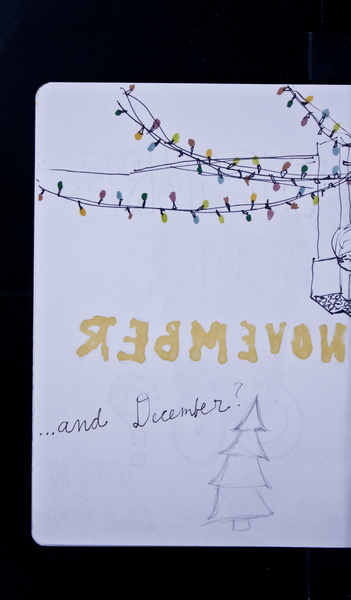 NOVEMBER
...and December?